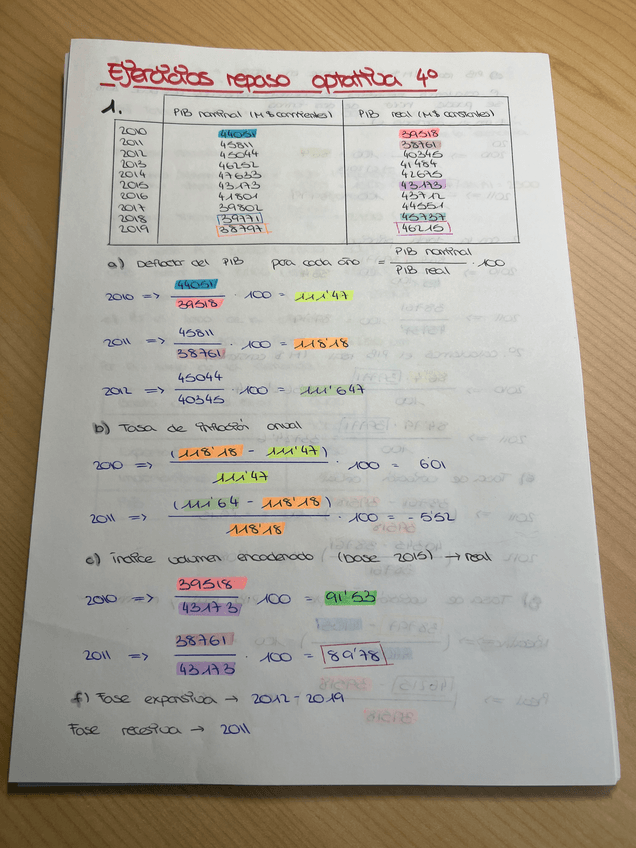 Ejercicios repaso optativa 4º
1.
PIB nominal (M$ corrientes) PIB real (M$ constantes)
2010 44051 39518
2011 45811 38761
2012 45044 40345
2013 46252 41484
2014 47633 42675
2015 43173 43173
2016 41801 43712
2017 39802 44551
2018 39771 45737
2019 38797 46215
a) Deflactor del PIB para cada año = PIB nominal / PIB real · 100
2010 => 44051 / 39518 · 100 = 111'47
2011 => 45811 / 38761 · 100 = 118'18
2012 => 45044 / 40345 · 100 = 111'647
b) Tasa de inflación anual
2010 => (118'18 - 111'47) / 111'47 · 100 = 6'01
2011 => (111'64 - 118'18) / 118'18 · 100 = - 5'52
c) índice volumen encadenado (base 2015) → real
2010 => 39518 / 43173 · 100 = 91'53
2011 => 38761 / 43173 · 100 = 89'78
f) Fase expansiva → 2012 - 2019
Fase recesiva → 2011